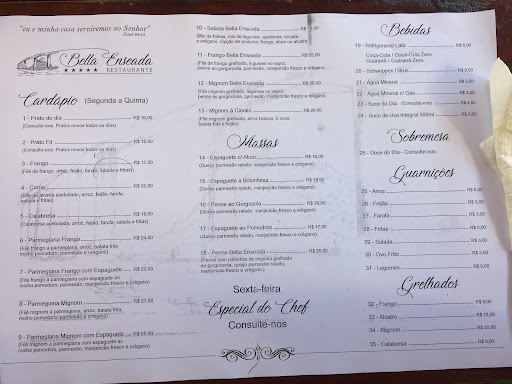 "eu e minha casa serviremos ao Senhor"
Bella Enseada
RESTAURANTE
Cardápio (Segunda a Quinta)
1 - Prato do dia R$ 16,00
(Consulte-nos. Pratos novos todos os dias)
2 - Prato Fit
(Consulte-nos. Pratos novos todos os dias)
3 - Frango R$ 17,00
(Filé de frango, arroz, feijão, farofa, salada e fritas)
4 - Carne R$ 20,00
(Filé de alcatra acebolado, arroz, feijão, farofa, salada e fritas)
5 - Calabresa R$ 18,00
(Calabresa acebolada, arroz, feijão, farofa, salada e fritas)
6 - Parmegiana Frango R$ 24,00
(Filé frango a parmegiana, arroz, batata frita
molho pomodoro, parmesão e orégano)
7 - Parmegiana Frango com Espaguete R$ 22,00
(Filé frango a parmegiana, espaguete ao
molho pomodoro, parmesão, manjericão fresco e orégano)
8 - Parmegiana Mignon R$ 27,00
(Filé mignon a parmegiana, arroz, batata frita,
molho pomodoro, parmesão e orégano)
9 - Parmegiana Mignon com Espaguete R$ 25,00
(Filé mignon a parmegiana, espaguete ao
molho pomodoro, parmesão, manjericão fresco e orégano)
10 - Salada Bella Enseada
(Mix de folhas, mix de legumes, azeitonas, tomate
e orégano. Opção de proteína: frango, atum ou alcatra)
11 - Frango Bella Enseada R$ 25,00
(Filé de frango grelhado, legumes no vapor,
penne ao parmesão, manjericão fresco e orégano)
12 - Mignon Bella Enseada
(Filé mignon grelhado, legumes no vapor,
penne ao parmesão, manjericão fresco e orégano)
13 - Mignon à Cavalo
(Filé mignon grelhado, arroz branco, 2 ovos,
batata frita e feijão)
Massas
14 - Espaguete c/ Atum R$ 18,00
(Queijo parmesão ralado, manjericão fresco e orégano)
15 - Espaguete a Bolonhesa R$ 18,00
(Queijo parmesão ralado, manjericão fresco e orégano)
16 - Penne ao Gorgonzola R$ 20,00
(Queijo parmesão ralado, manjericão fresco e orégano)
17 - Espaguete ao Pomodoro R$ 17,00
(Queijo parmesão ralado, manjericão fresco e orégano)
18 - Penne Bella Enseada R$ 25,00
(Penne com cubinhos de mignon grelhado
ao gorgonzola, queijo parmesão ralado,
manjericão fresco e orégano)
Sexta-feira
Especial do Chef
Consulte-nos
Bebidas
19 - Refrigerante Lata R$ 5,00
Coca-Cola / Coca-Cola Zero
Guaraná / Guaraná Zero
20 - Schweppes Citrus R$ 5,00
21 - Água Mineral
22 - Água Mineral c/ Gás
23 - Suco do Dia (Consulte-nos) R$ 4,00
24 - Suco de Uva Integral 300ml R$ 5,00
Sobremesa
25 - Doce do Dia - Consulte-nos
Guarnições
25 - Arroz
26 - Feijão
27 - Farofa
28 - Fritas
29 - Salada
30 - Ovo Frito
31 - Legumes
Grelhados
32 - Frango
33 - Alcatra
34 - Mignon R$ 20,00
35 - Calabresa